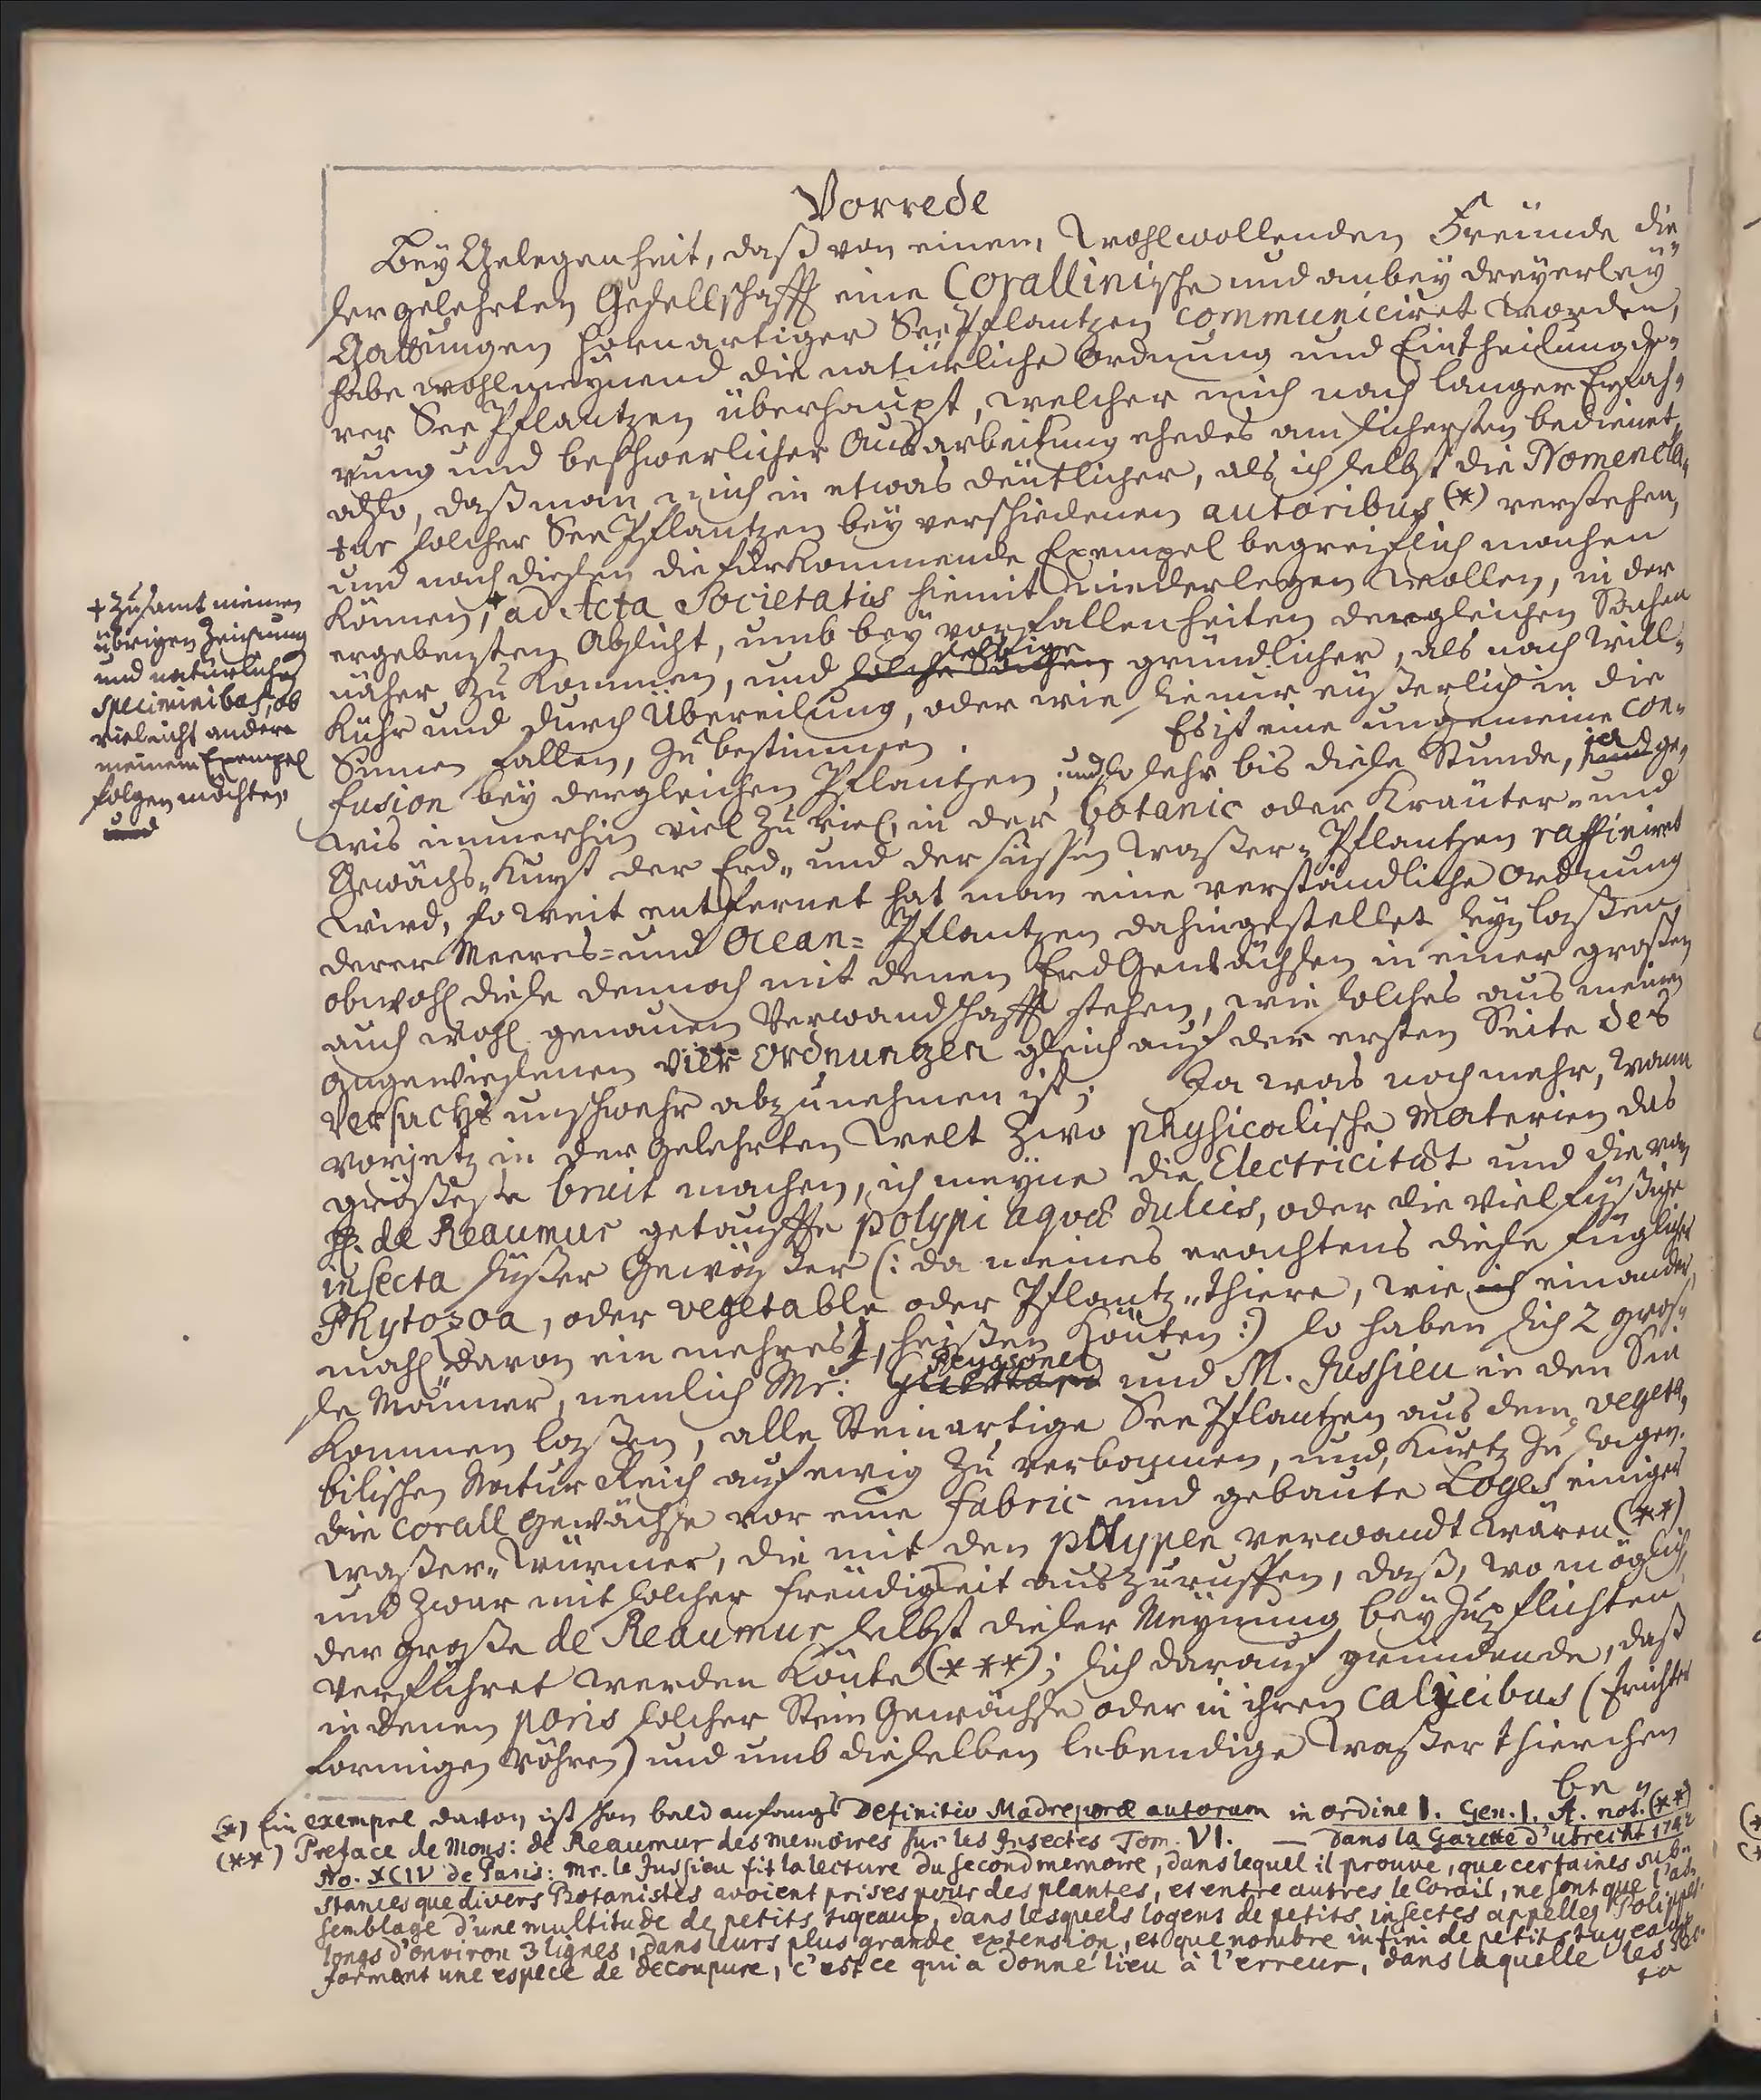 Vorrede
Beÿ Gelegenheit, daß von einem Wohlwollenden Freünde die
ser gelehrten Gesellschafft eine Corallinische und anbeÿ dreyerleÿ
Gattungen hornartiger SeePflantzen communiciret worden,
habe wohlmeynend die natürliche Ordnung und Eintheilung de-
rer See Pflantzen überhaupt, welcher mich nach langer Erfah-
rung und beschwerlicher Ausarbeitung ehedes am sichersten bedienet,
also, daß man mich in etwas deütlicher, als ich selbst die Nomencla-
tur solcher SeePflantzen beÿ verschiedenen autoribus (*) verstehen,
und nach diesen die fürkommende Exempel begreifflich machen
können,+ ad Acta Societatis hiemit niederlegen wollen, in der
ergebensten Absicht, umb beÿ vorfallenheiten dergleichen Sachen
näher zu kommen, und solche Sachen selbige gründlicher, als nach Will-
kühr und durch Übereilung, oder wie sie nur eüßerlich in die
Sinnen fallen, zu bestimmen. Es ist eine ungemeine con-
fusion beÿ dergleichen Pflantzen, und so sehr bis diese Stunde, ja ge-
wis immerhin viel zu viel, in der botanic oder Kraüter- und
Gewächs-Kunst der Erd- und der süssen Waßer-Pflantzen raffiniret
wird, so weit entfernet hat man eine verständliche Ordnung
derer Meeres- und Ocean- Pflantzen dahingestellet seyn laßen,
obwohl diese dennoch mit denen Erd Gewächsen in einer großen
auch wohl genauen Verwandschafft stehen, wie solches aus meinen
angewiesenen vier Ordnungen gleich auf der ersten Seite des
Versuchs unschwehr abzunehmen ist; Ja was noch mehr, wann
vorjetz in der Gelehrten Welt zwo physicalische Materien das
größeste bruit machen, ich meyne die Electricitæt und die von
H. de Reaumur getauffte polypi aquæ dulcis, oder die vielfüßige
insecta süßer Gewäßer (: da meines erachtens diese füglicher
Phytozoa, oder vegetable oder Pflantz-thiere, wie ich einander
mahl davon ein mehres, heißen könten :) so haben sich 2 gros-
se Männer, nemlich Mr: Guettard Peyssonel und M. Jussieu in den Sin
kommen laßen, alle Steinartige SeePflantzen aus dem vegeta-
bilischen Natur Reich auf ewig zu verbannen, und, kurtz zu sagen,
die Corall Gewächse vor eine fabric und gebaute Loges einiger
Waßer-Würmer, die mit den polypen verwandt wären (**)
und zwar mit solcher freüdigkeit auszuruffen, daß, wo möglich,
der große de Reaumur selbst dieser Meynung beÿzupflichten
verführet werden könte (***); sich darauf gründende, daß
in denen poris solcher Stein Gewächse oder in ihren calycibus (trichter
formigen röhren) und umb dieselben lebendige Waßer thierchen
ben
+ Zusamt meinen
übrigen Zeichnung
und natürlichen
speciminibus, ob
vieleicht andere
meinem Exempel
folgen möchten.
und
(*) Ein exempel davon ist schon bald anfangs Definitio Madreporæ autorum in ordine I. Gen. I. A. not. (**)
(**) Preface de Mons: de Reaumur des memoires sur les Insectes Tom. VI. — dans la Gazette d'utrecht 1742
No. XCIV de Paris: Mr. le Jussieu fit la lecture du second memoire, dans lequel il prouve, que certaines sub-
stances que divers Botanistes avoient prises pour des plantes, et entre autres le Corail, ne sont que l'as-
semblage d'une multitude de petits tuyeaux, dans lesquels logent de petits insectes appelles Polippes,
longs d'environ 3 lignes, dans leurs plus grande extension, et que nombre infini de petits tuyeaux
formant une espece de decoupure, c'est ce qui a donné lieu à l'erreur, dans laquelle les Bo-
ta